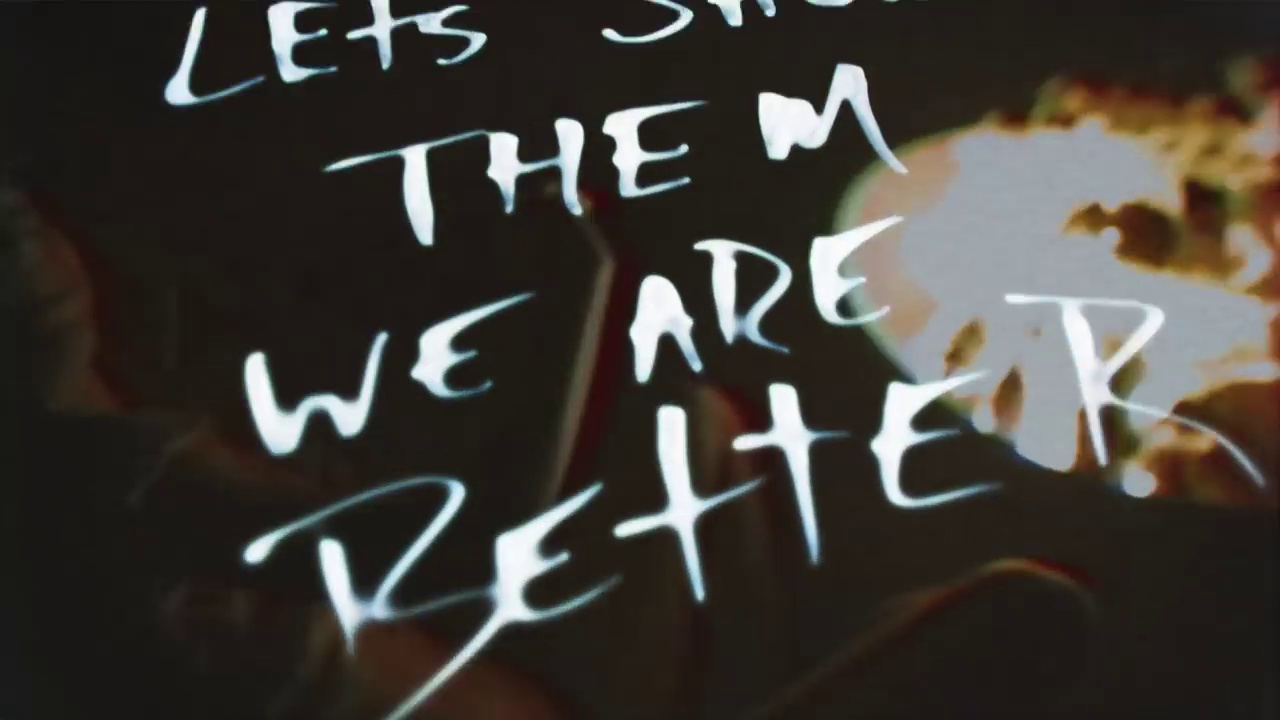 LEts SHOW
THEM
WE ARE
BEttER